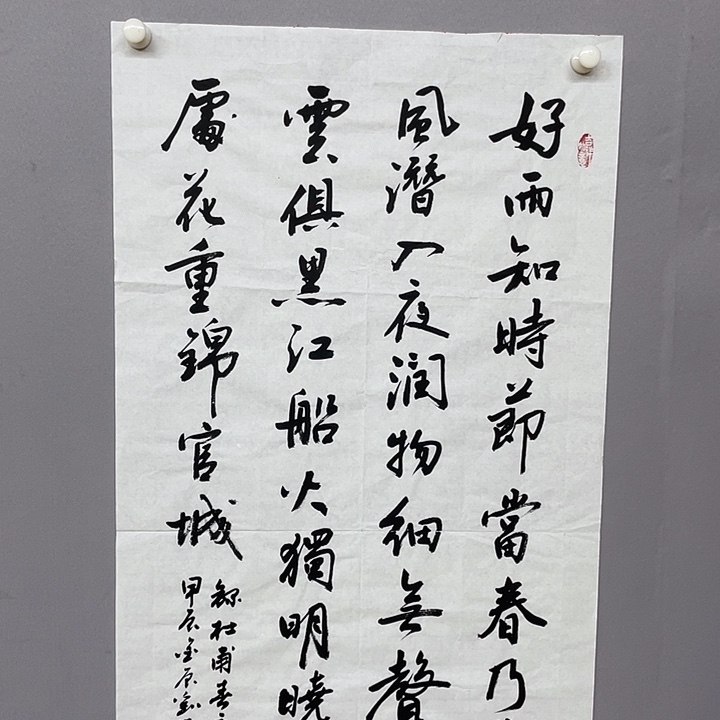 好雨知時節當春乃
風潛入夜潤物細無聲
雲俱黑江船火獨明曉
處花重錦官城
錄杜甫春
甲辰